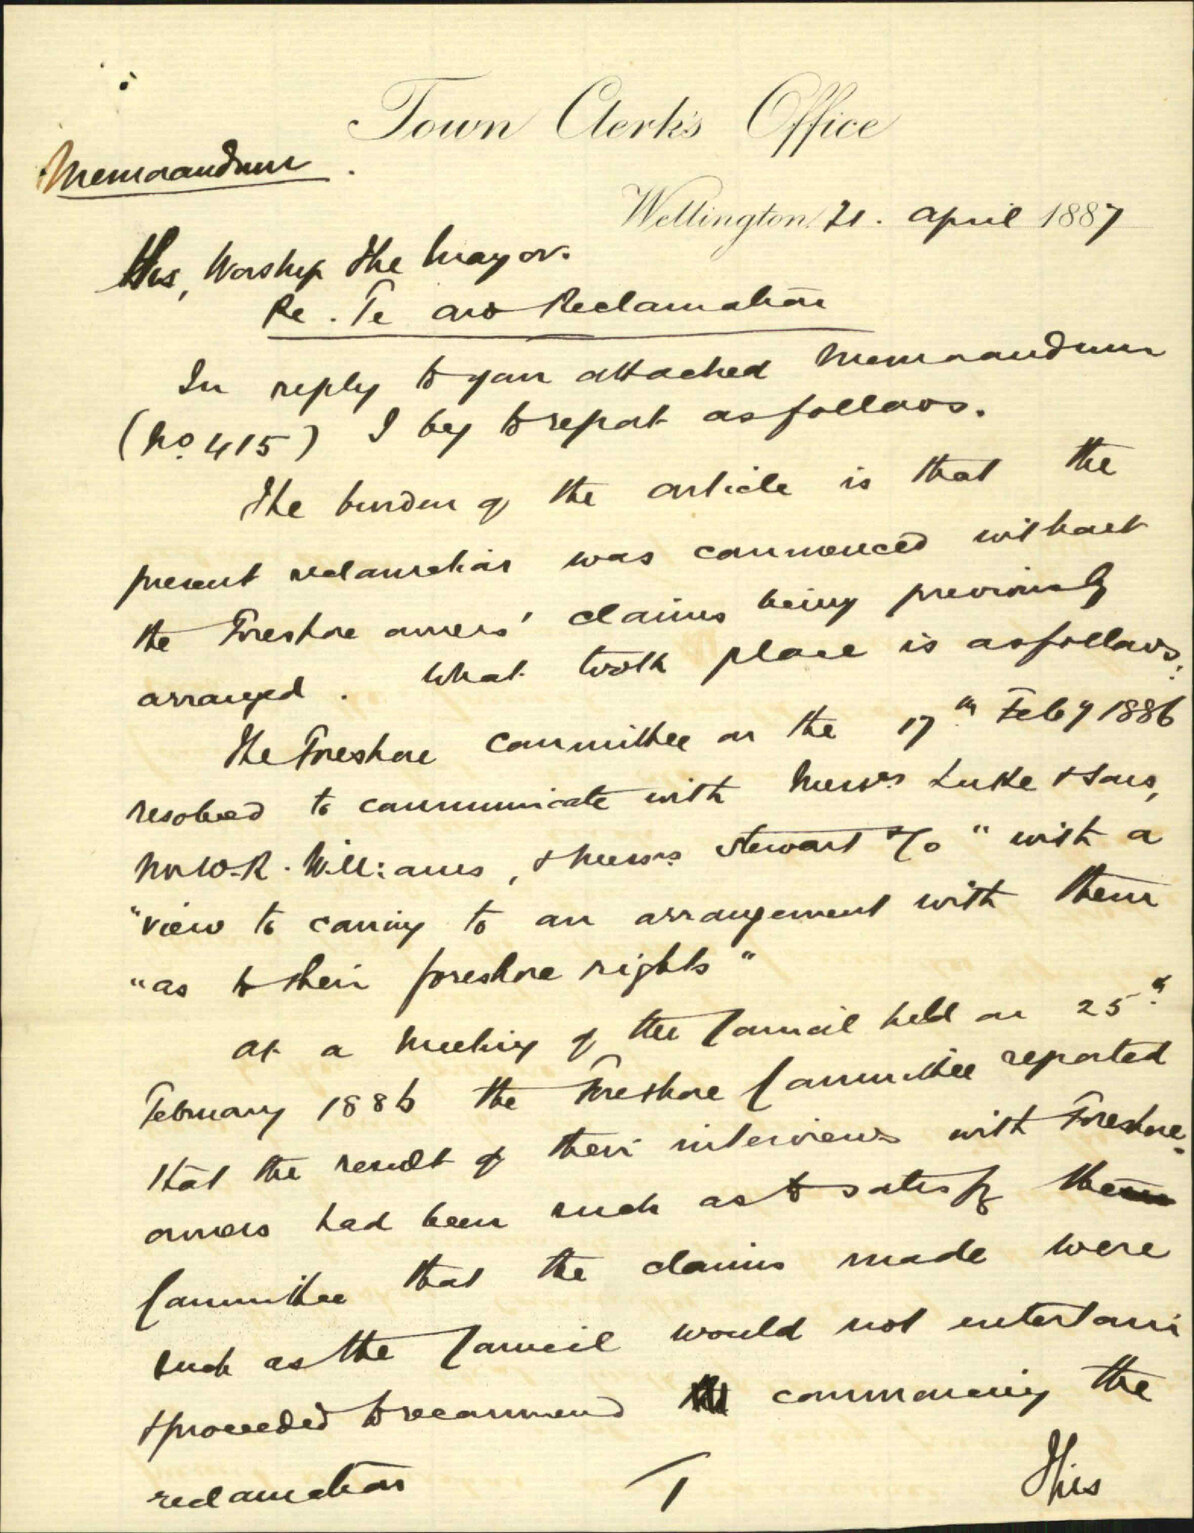 Town Clerk's Office
Memorandum.
Wellington, 21. April 1887
His, Worship the Mayor.
Re. Te aro Reclamation
In reply to your attached Memorandum
(No. 415) I beg to report as follows.
The burden of the article is that the
present reclamation was commenced without
the Foreshore owners' claims being previously
arranged. What took place is as follows:
The Foreshore Committee on the 17th Feby 1886
resolved to communicate with Messrs Luke & Sons,
Mr W.R. Williams, & Messrs Stewart & Co "with a
"view to coming to an arrangement with them
"as to their foreshore rights"
At a Meeting of the Council held on 25th
February 1886 the Foreshore Committee reported
that the result of their interviews with Foreshore-
owners had been such as to satisfy the
Committee that the claims made were
such as the Council would not entertain
& proceeded to recommend commencing the
reclamation
This